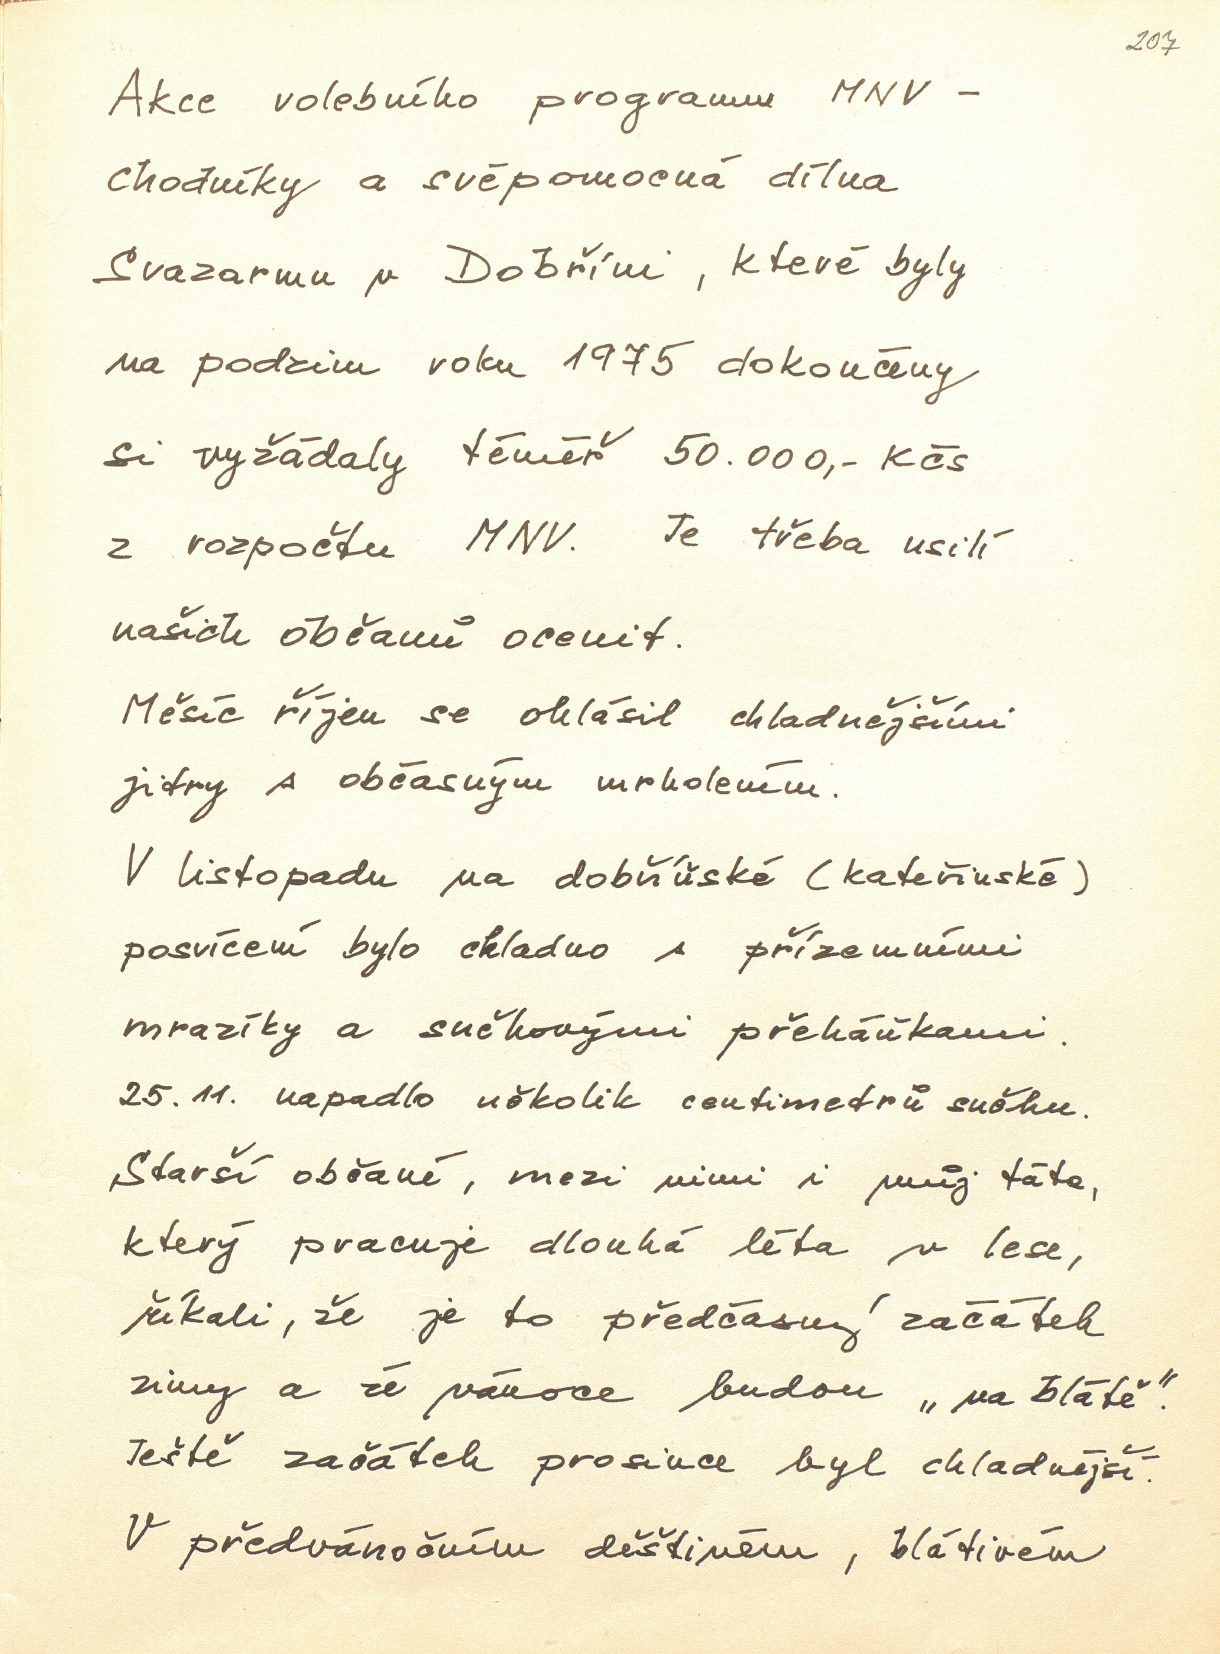 207
Akce volebního programu MNV –
chodníky a svépomocná dílna
Svazarmu v Dobříni, které byly
na podzim roku 1975 dokončeny
si vyžádaly téměř 50.000,- Kčs
z rozpočtu MNV. Je třeba usilí
našich občanů ocenit.
Měsíc říjen se ohlásil chladnějšími
jitry s občasným mrholením.
V listopadu na dobříňské (kateřinské)
posvícení bylo chladno s přízemními
mrazíky a sněhovými přeháňkami.
25.11. napadlo několik centimetrů sněhu.
Starší občané, mezi nimi i můj táta,
který pracuje dlouhá léta v lese,
říkali, že je to předčasný začátek
zimy a že vánoce budou „na blátě".
Ještě začátek prosince byl chladnější.
V předvánočním deštivém, blátivém